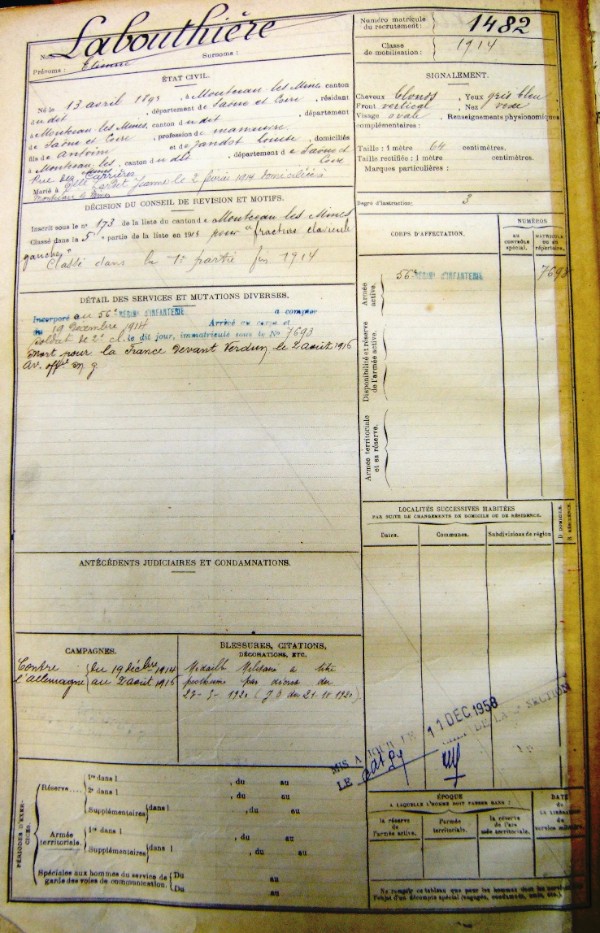 Labouthière
Numéro matricule du recrutement : 1482
Classe de mobilisation : 1914
Prénoms : Surnoms :
ÉTAT CIVIL.
Né le 13 avril 1893, à Montceau les Mines, canton
du dit, département de Saône et Loire, résidant
à Montceau les Mines, canton du dit, département
de Saône et Loire, profession de manœuvre
fils de Antoine et de Jandot Louise, domiciliés
à Montceau les Mines, canton du dit, département de Saône et Loire
Rue des Carrières
Marié à Jeanne le 2 domiciliés
SIGNALEMENT.
Cheveux blonds Yeux gris bleu
Front vertical Nez
Visage ovale Renseignements physionomiques
complémentaires :
Taille : 1 mètre 64 centimètres.
Taille rectifiée : 1 mètre centimètres.
Marques particulières :
Degré d'instruction : 3
DÉCISION DU CONSEIL DE RÉVISION ET MOTIFS.
Inscrit sous le n° 173 de la liste du canton de Montceau les Mines
Classé dans la 5e partie de la liste en 1913 pour fracture clavicule
gauche
Classé dans la 1e partie en 1914
CORPS D'AFFECTATION.
NUMÉROS
AU CONTRÔLE SPÉCIAL.
MATRICULE OU AU RÉPERTOIRE.
Armée active.
56e RÉGIMENT D'INFANTERIE 7693
Disponibilité et réserve de l'armée active.
Armée territoriale et sa réserve.
DÉTAIL DES SERVICES ET MUTATIONS DIVERSES.
Incorporé au 56e RÉGIMENT D'INFANTERIE à compter
du 19 Décembre 1914 Arrivé au corps et
soldat de 2e cl. le dit jour, immatriculé sous le No 7693
Mort pour la France devant Verdun le 2 août 1916
Av. offel
LOCALITÉS SUCCESSIVES HABITÉES
PAR SUITE DE CHANGEMENTS DE DOMICILE OU DE RÉSIDENCE.
Dates. Communes. Subdivisions de région D. DOMICILE. R. RÉSIDENCE.
ANTÉCÉDENTS JUDICIAIRES ET CONDAMNATIONS.
CAMPAGNES.
Contre l'Allemagne
du 19 décbre 1914
au 2 août 1916
BLESSURES, CITATIONS,
DÉCORATIONS, ETC.
Médaille Militaire à titre
posthume par
MIS A JOUR LE 11 DEC 1958
LE DE LA SECTION
PÉRIODES D'EXERCICES.
Réserve 1re dans l , du au
2e dans l , du au
Supplémentaires dans l , du au
Armée territoriale. 1re dans l , du au
Supplémentaires dans l , du au
Spéciales aux hommes du service de
garde des voies de communication. Du au
Du au
ÉPOQUE
A LAQUELLE L'HOMME DOIT PASSER DANS :
la réserve de l'armée active.
l'armée territoriale.
la réserve de l'armée territoriale.
DATE de la LIBÉRATION du service militaire.
Ne remplir ce tableau que pour les hommes dans
l'objet d'un décompte spécial (engagés, condamnés, omis, etc.)